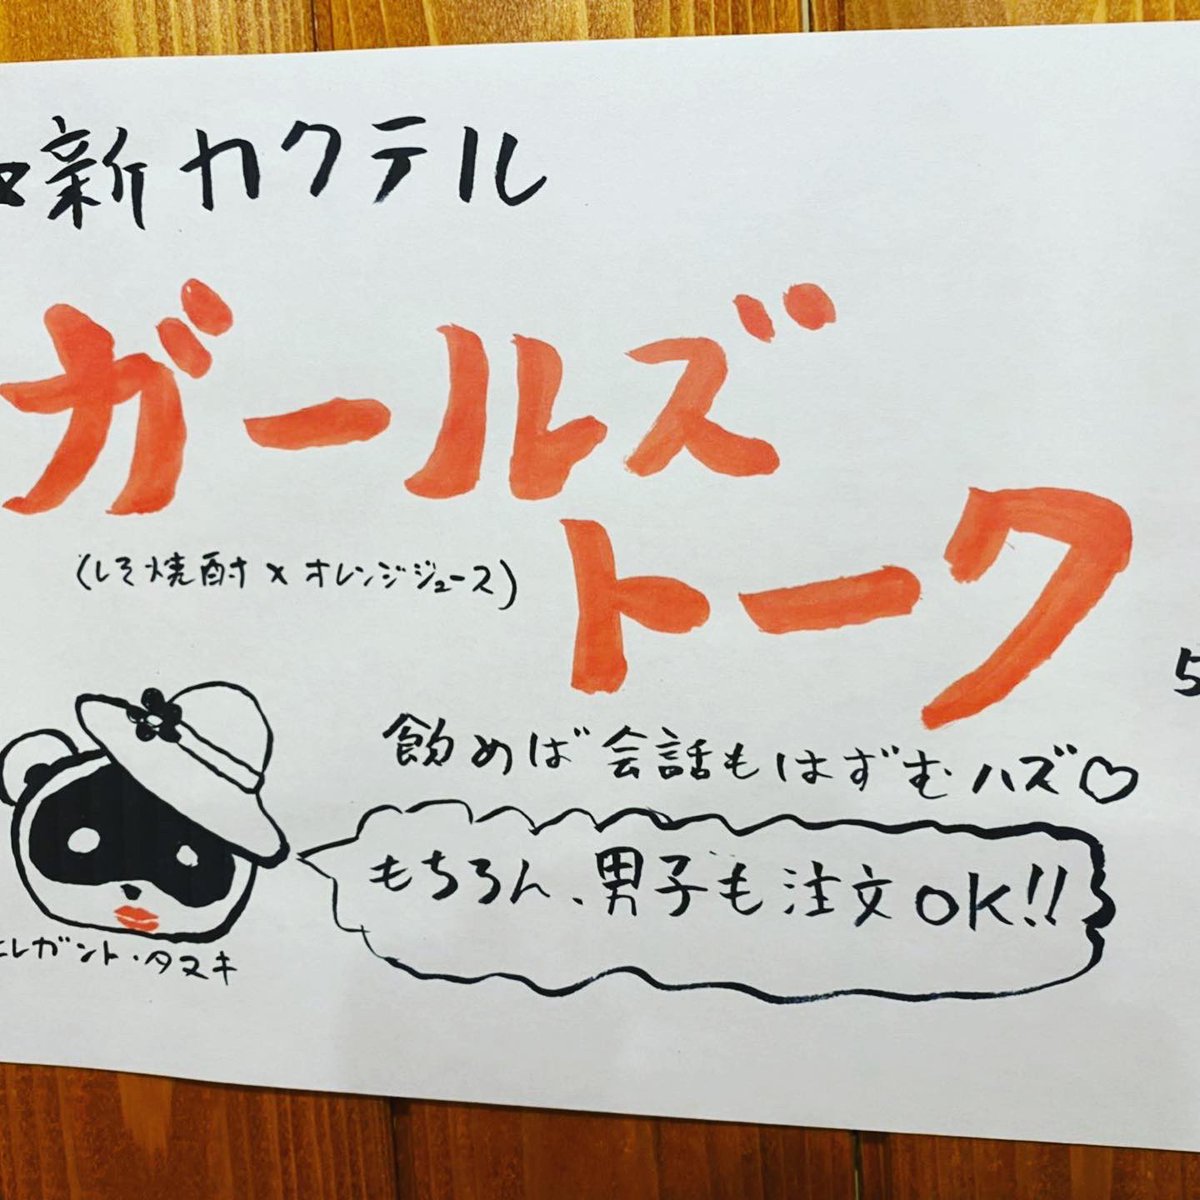 新カクテル
ガールズ
トーク
(しそ焼酎×オレンジジュース)
5
飲めば会話もはずむハズ♡
もちろん、男子も注文OK!!
エレガント・タヌキ